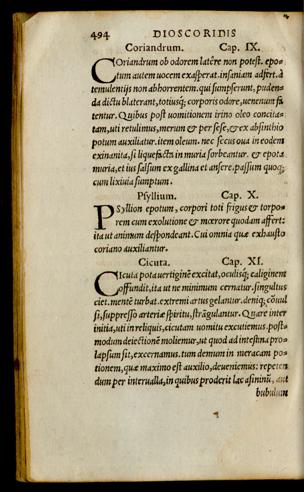 494 DIOSCORIDIS
Coriandrum. Cap. IX.
COriandrum ob odorem latêre non potest. epo-
tum autem uocem exasperat. insaniam adfert. à
temulentijs non abhorrentem. qui sumpserunt, puden-
da dictu blaterant, totiusq; corporis odore, uenenum fa
tentur. Quibus post uomitionem irino oleo concita-
tam, uti retulimus, merum & per sese, & ex absinthio
potum auxiliatur. item oleum. nec secus oua in eodem
exinanita, si liquefacta in muria sorbeantur. & epota
muria, et ius salsum ex gallina et ansere. passum quoq;
cum lixiuia sumptum.
Psyllium. Cap. X.
PSyllion epotum, corpori toti frigus & torpo-
rem cum exolutione & mœrore quodam affert:
ita ut animum despondeant. Cui omnia quæ exhausto
coriano auxiliantur.
Cicuta. Cap. XI.
CIcuta pota uertiginē excitat, oculisq; caliginem
offundit, ita ut ne minimum cernatur. singultus
ciet. mentē turbat. extremi artus gelantur. deniq; cōuul
si, suppresso arteriæ spiritu, strāgulantur. Quare inter
initia, uti in reliquis, cicutam uomitu excutiemus. post-
modum deiectionē moliemur, ut quod ad intestina pro-
lapsum sit, excernamus. tum demum in meracam po-
tionem, quæ maximo est auxilio, deueniemus: repeten
dum per interualla, in quibus proderit lac asininū, aut
bubulum